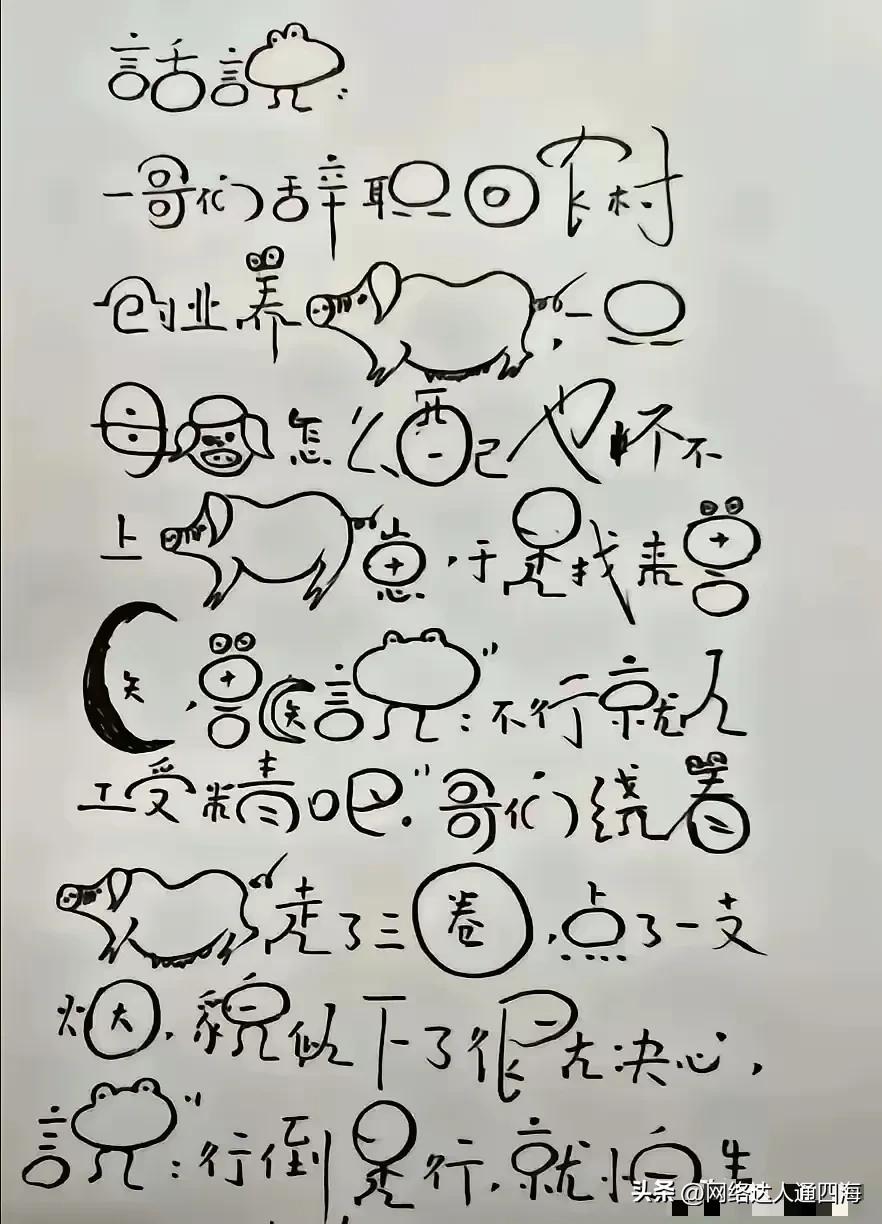 話說：
一哥们辞职回农村
创业养，一只
母怎么配也怀不
上崽，于是找来兽
医，兽医說"：不行就人
工受精吧."哥们绕着
走了三圈，点了一支
烟，貌似下了很大决心，
說"：行倒是行，就怕生
头条 @网络达人通四海